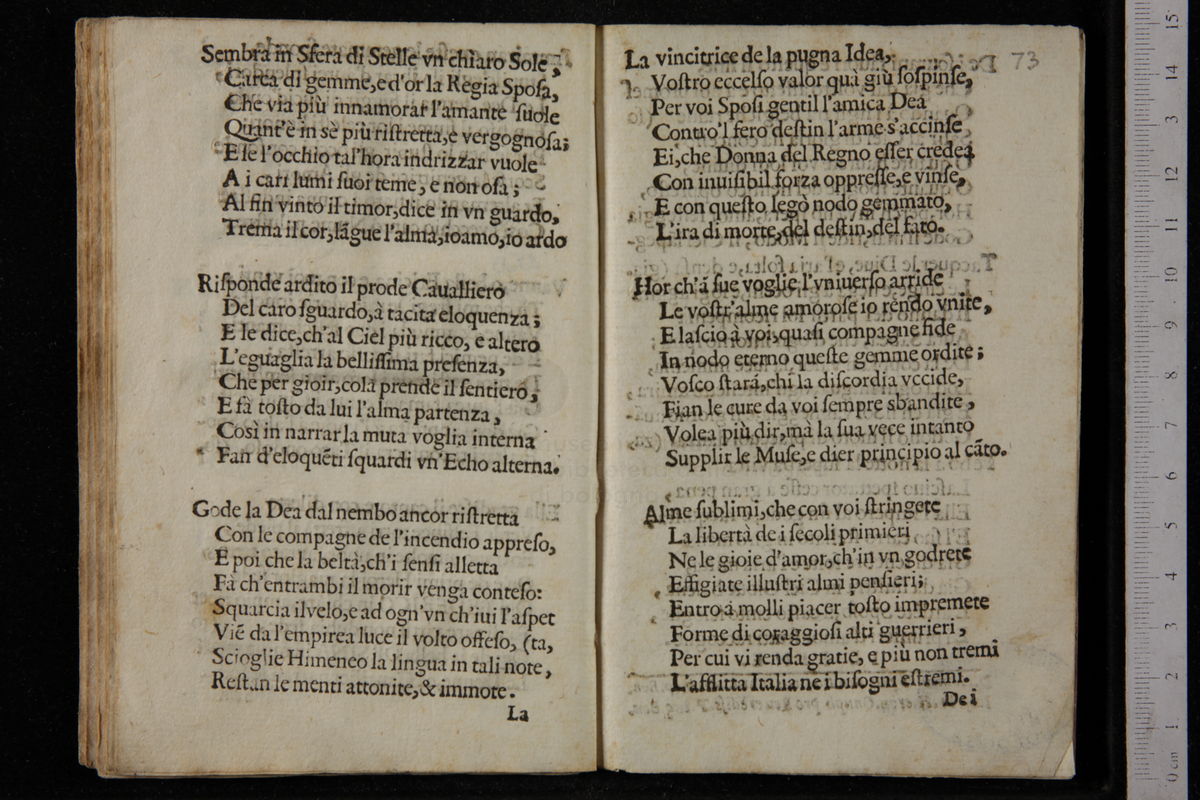 Sembra in Sfera di Stelle vn chiaro Sole,
Carca di gemme, e d'or la Regia Sposa,
Che via più innamorar l'amante suole
Quant'è in sè più ristretta, e vergognosa;
E se l'occhio tal'hora indrizzar vuole
A i cari lumi suoi teme, e non osa;
Al fin vinto il timor, dice in vn guardo,
Trema il cor, lāgue l'alma, io amo, io ardo
Risponde ardito il prode Caualliero
Del caro sguardo, à tacita eloquenza;
E le dice, ch'al Ciel più ricco, e altero
L'eguaglia la bellissima presenza,
Che per gioir, colà prende il sentiero,
E fà tosto da lui l'alma partenza,
Così in narrar la muta voglia interna
Fan d'eloquēti squardi vn'Echo alterna.
Gode la Dea dal nembo ancor ristretta
Con le compagne de l'incendio appreso,
E poi che la beltà, ch'i sensi alletta
Fà ch'entrambi il morir venga conteso:
Squarcia il velo, e ad ogn'vn ch'iui l'aspet
Viē da l'empirea luce il volto offeso, (ta,
Scioglie Himeneo la lingua in tali note,
Restan le menti attonite, & immote.
La
73
La vincitrice de la pugna Idea,
Vostro eccelso valor quà giù sospinse,
Per voi Sposi gentil l'amica Dea
Contro'l fero destin l'arme s'accinse
Ei, che Donna del Regno esser credea
Con inuisibil forza oppresse, e vinse,
E con questo legò nodo gemmato,
L'ira di morte, del destin, del fato.
Hor ch'à sue voglie l'vniuerso arride
Le vostr'alme amorose io rendo vnite,
E lascio à voi, quasi compagne fide
In nodo eterno queste gemme ordite;
Vosco starà, chi la discordia vccide,
Fian le cure da voi sempre sbandite,
Volea più dir, mà la sua vece intanto
Supplir le Muse, e dier principio al cāto.
Alme sublimi, che con voi stringete
La libertà de i secoli primieri
Ne le gioie d'amor, ch'in vn godrete
Effigiate illustri almi pensieri;
Entro à molli piacer tosto impremete
Forme di coraggiosi alti guerrieri,
Per cui vi renda gratie, e più non tremi
L'afflitta Italia ne i bisogni estremi.
De i